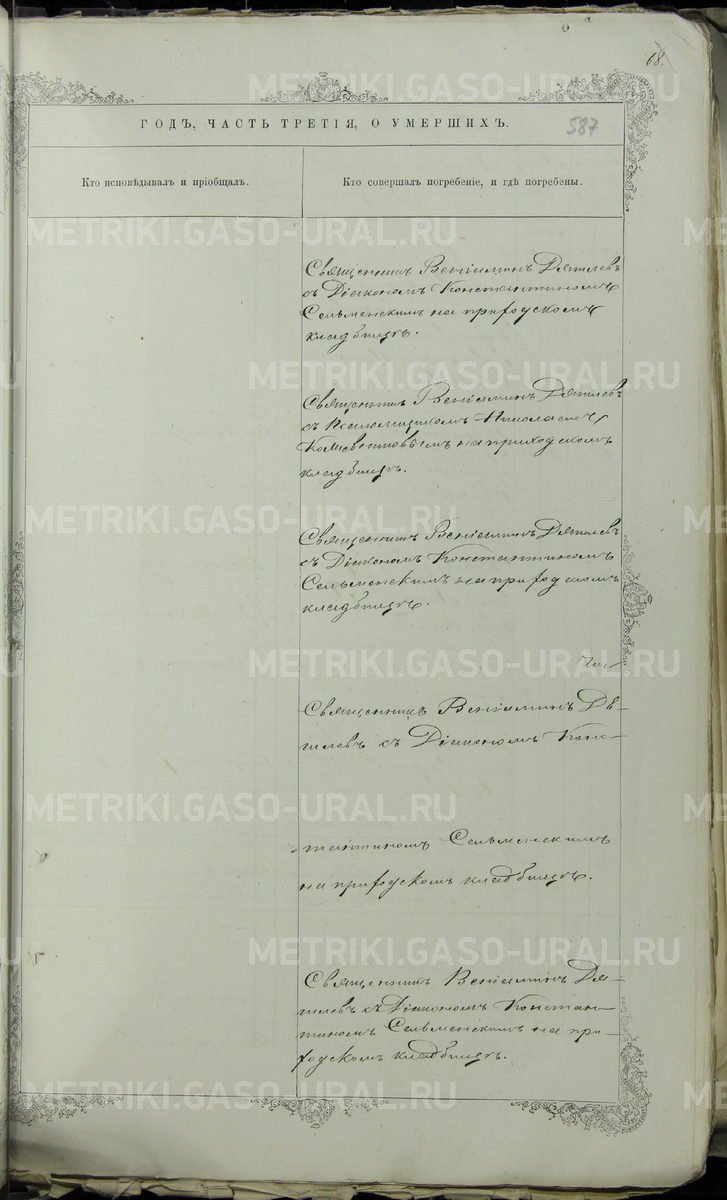 68.
ГОДЪ, ЧАСТЬ ТРЕТІЯ, О УМЕРШИХЪ.
587
Кто исповѣдывалъ и пріобщалъ.
Кто совершалъ погребеніе, и гдѣ погребены.
Священникъ Веніаминъ Дягилевъ
съ Діакономъ Константиномъ
Сельменскимъ на приходскомъ
кладбищѣ.
Священникъ Веніаминъ Дягилевъ
съ Псаломщикомъ Николаемъ
на приходскомъ
кладбищѣ.
Священникъ Веніаминъ Дягилевъ
съ Діакономъ Константиномъ
Сельменскимъ на приходскомъ
кладбищѣ.
Священникъ Веніаминъ Дя-
гилевъ съ Діакономъ Конс-
тантиномъ Сельменскимъ
на приходскомъ кладбищѣ.
Священникъ Веніаминъ Дя-
гилевъ съ Діакономъ Констан-
тиномъ Сельменскимъ на при-
ходскомъ кладбищѣ.
METRIKI.GASO-URAL.RU